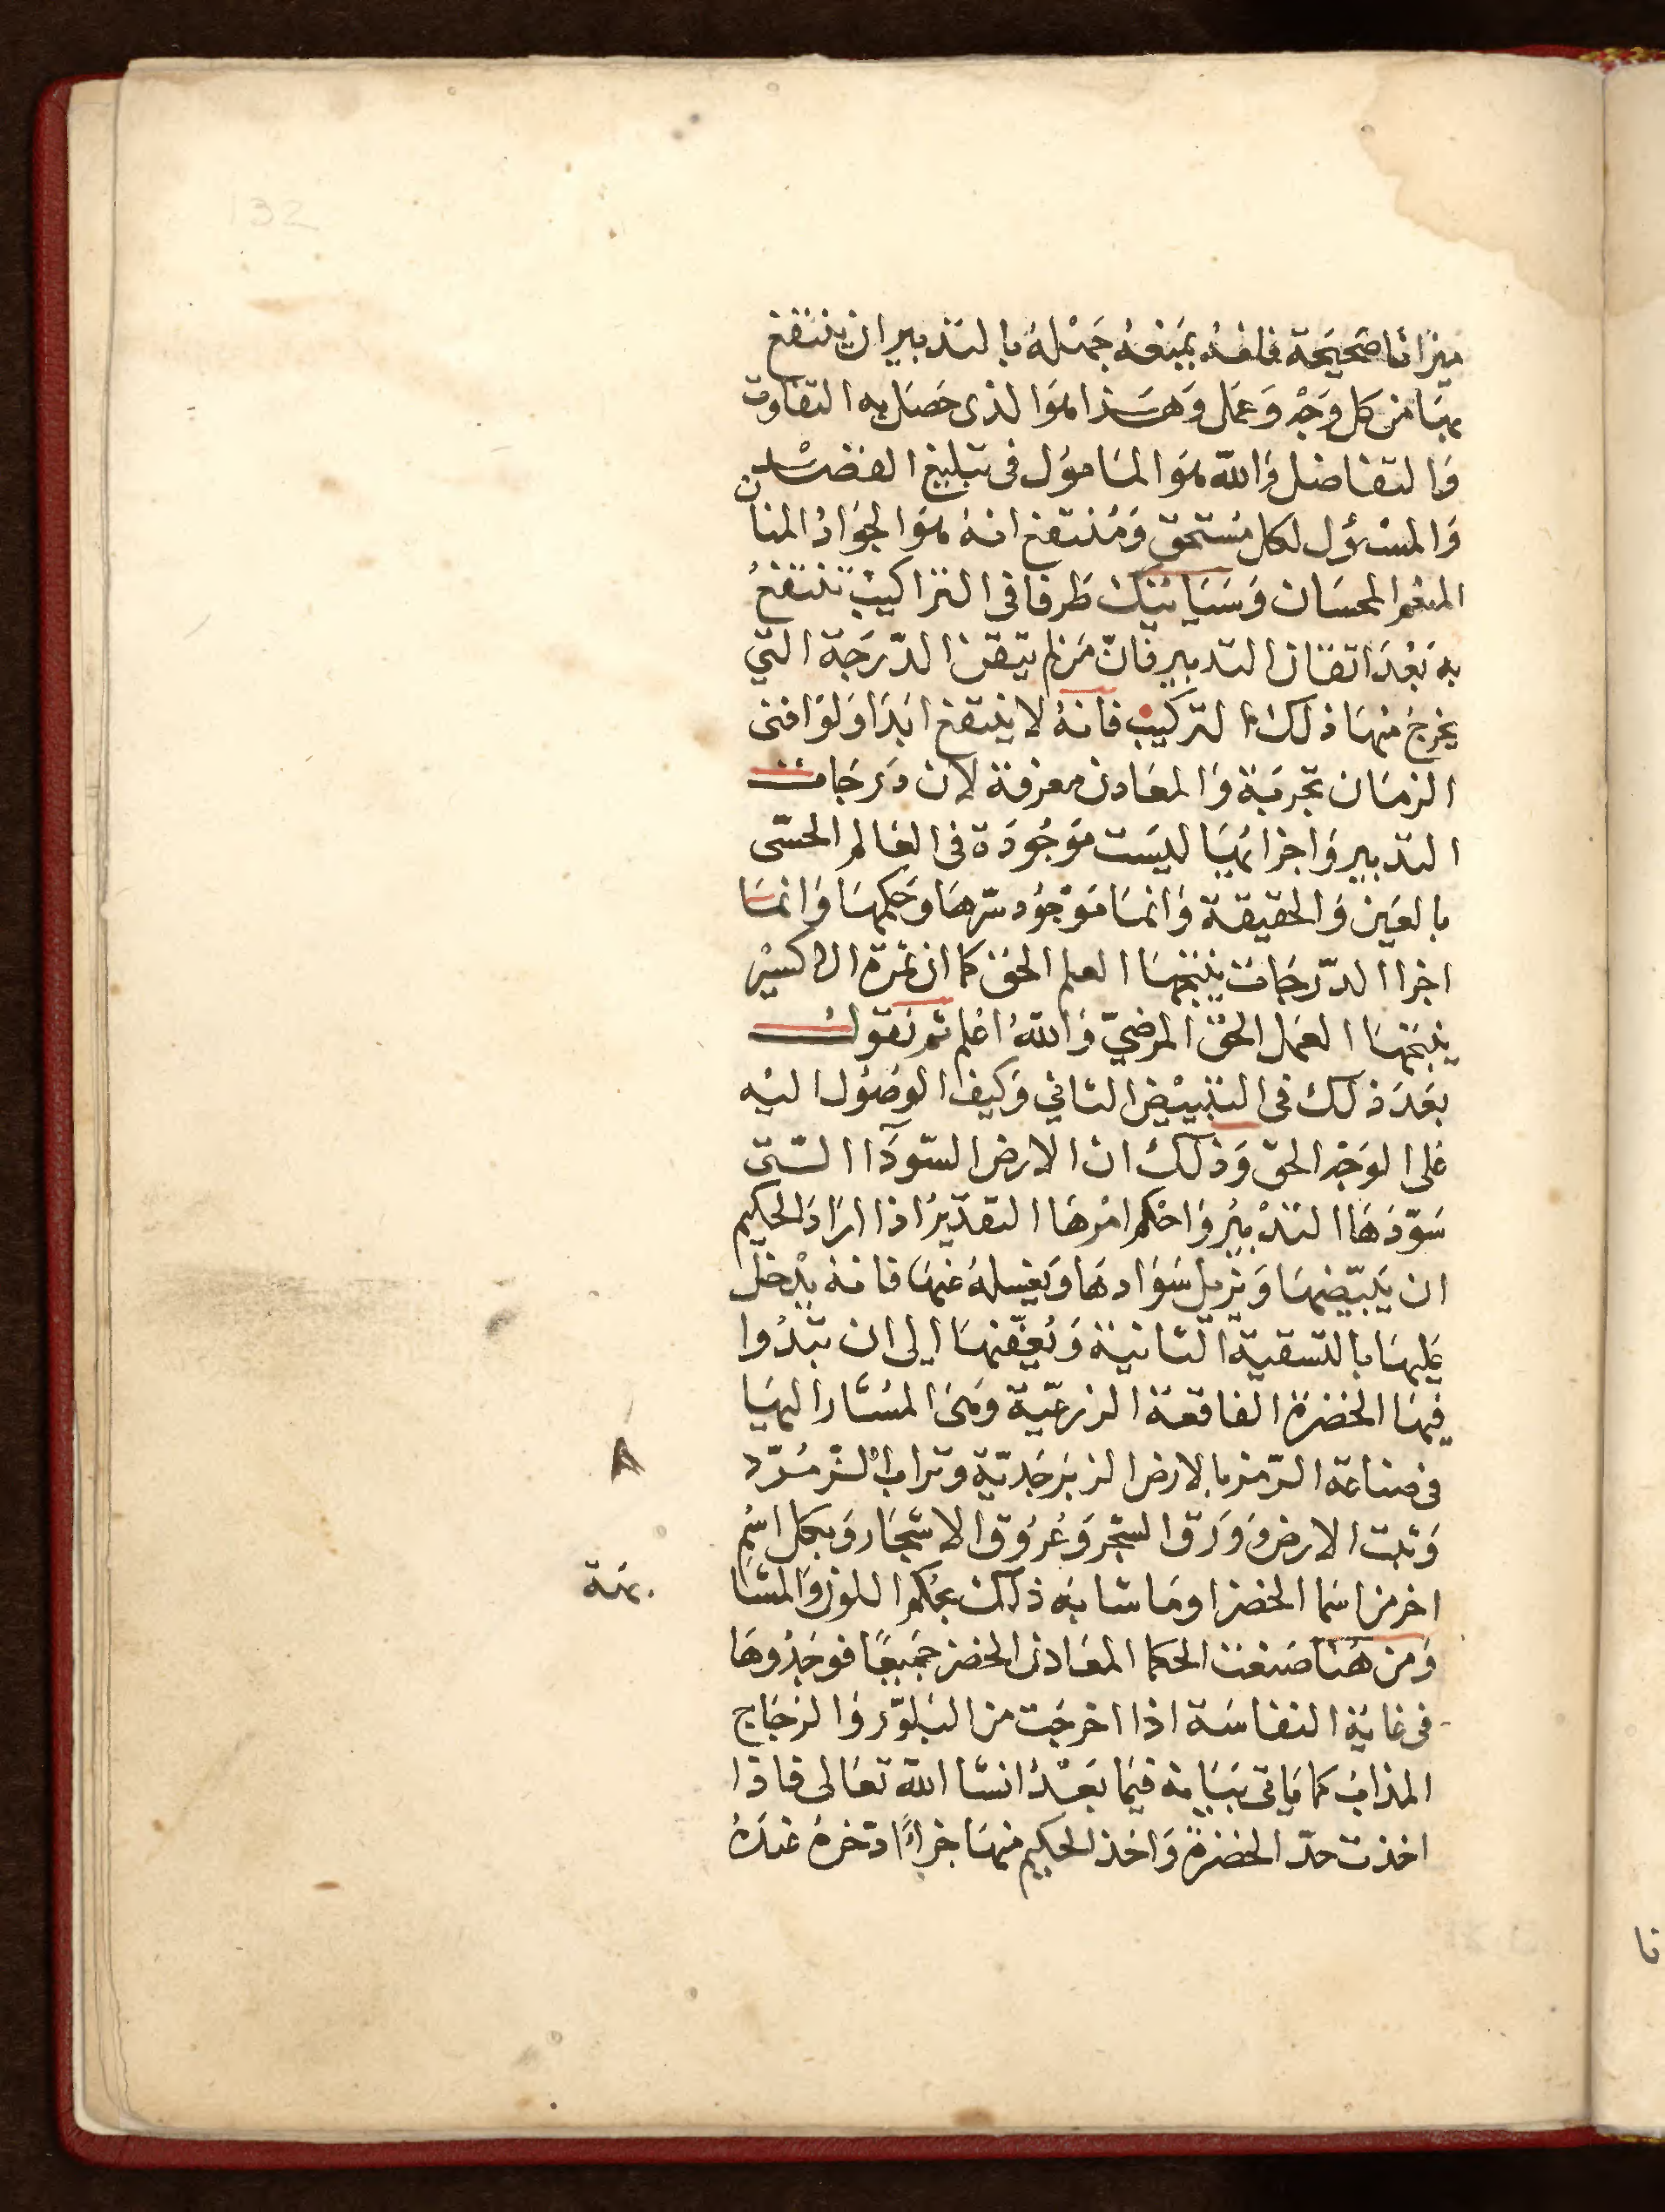 132
ميزانا صحيحة فانه يمنعه جهله بالتدبير ان ينتفع
بها من كل وجه وعمل وهذا هو الذى حصل به التفاوت
والتفاضل والله هو المامول فى تبليغ القصد
والمسؤل لكل مستحق ومنتفع انه هو الجواد المنان
المنعم المحسان وسياتيك طرفا فى التراكيب تنتفع
به بعد اتقان التدبير فان من لم يتقن الدرجة التي
يخرج منها ذلك التركيب فانه لا ينتفع ابدا ولو افنى
الزمان تجربة والمعادن معرفة لان درجات
التدبير واجزائها ليست موجودة فى العالم الحسّى
بالعين والحقيقة وانما موجود سرّها وحكمها وانما
اجزا الدّرجات ينتجها العلم الحق كما ان ثمرة الاكسير
ينتجها العمل الحق المرضيّ والله اعلم ثم نقول
بعد ذلك فى التبييض الثاني وكيف الوصول اليه
على الوجه الحق وذلك ان الارض السّودآ الستى
سوّدها التدبير واحكم امرها التقدير اذا اراد الحكيم
ان يبيّضها ويزيل سوادها ويغسله عنها فانه يدخل
عليها بالتسقية الثانية ويعفّنها الى ان تبدوا
فيها الخضرة الفاقعة الزرعيّة وهى المشار اليها
فى صناعة الرّمز بالارض الزبرجديّة وتراب الزّمرّد
ونبت الارض وورق الشجر وعروق الاشجار وبكل اسم
اخر من اسما الخضرا وما شابه ذلك بحكم اللون والمشا
بهة
ومن هنا صنعت الحكما المعادن الخضر جميعًا فوجدوها
فى غاية النفاسة اذا اخرجت من البلّور والزجاج
المذاب كما ياتى بيانه فيما بعد انشا الله تعالى فاذا
اخذت حدّ الخضرة واخذ الحكيم منها جزاءً ادخره عنده
نا